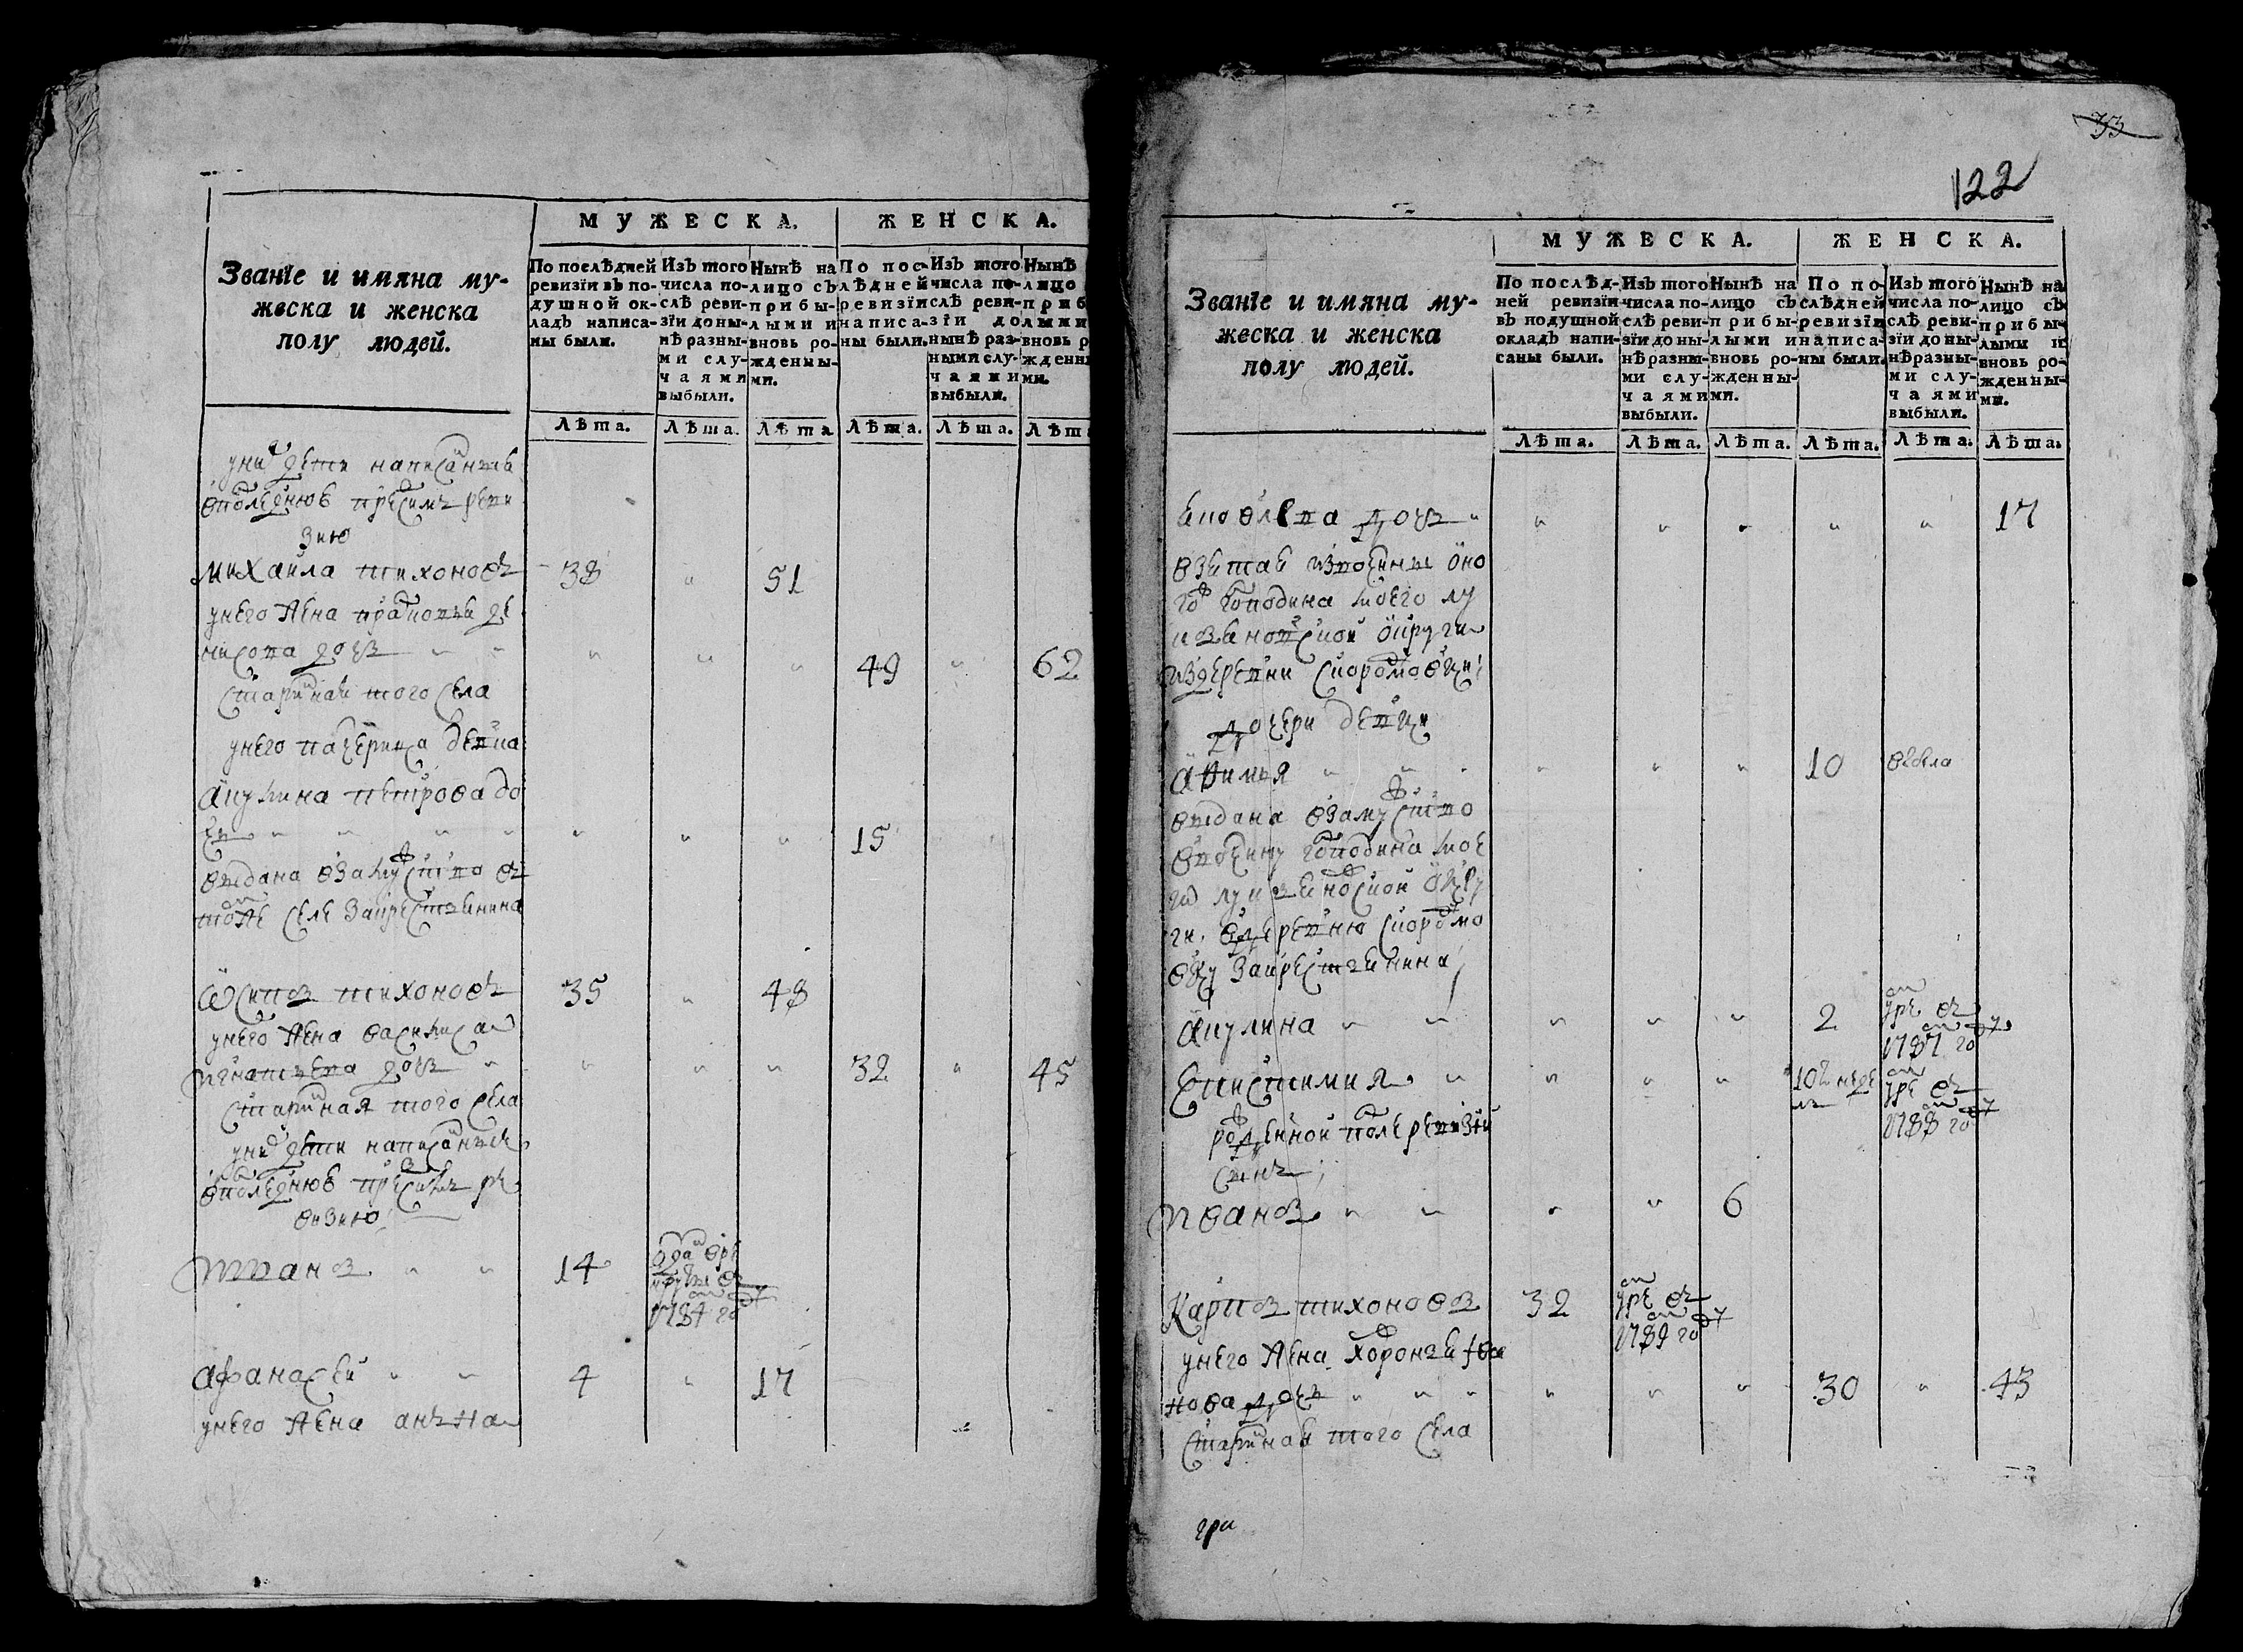 МУЖЕСКА.
ЖЕНСКА.
Званїе и имяна му-
жеска и женска
полу людей.
По послѣдней
ревизїи въ по-
душной ок-
ладъ написа-
ны были.
Изъ того
числа по-
слѣ реви-
зїи доны-
нѣ разны-
ми слу-
чаями
выбыли.
Нынѣ на
лицо съ
прибы-
лыми и
вновь ро-
жденны-
ми.
По пос-
лѣдней
ревизїи
написа-
ны были.
Изъ того
числа по-
слѣ реви-
зїи до
нынѣ раз-
ными слу-
чаями
выбыли.
Нынѣ
лицо
приб
лыми
вновь р
жденны
ми.
Лѣта. Лѣта. Лѣта Лѣта. Лѣта. Лѣт
у них дети написанныя
в последнюю пред сим реви
зию
михаила тихоновъ 38 " 51
у него жена
дочь " " " " " 49 " 62
старинная того села
у него падчерица девка
акулина петрова до
чь " " " " " " " 15
выдана взамужство въ
том же селе за крестьянина
осипъ тихоновъ 35 " 48
у него жена василиса
игнатьева дочь " " " " 32 " 45
старинная того села
у них дети написанные
в последнюю пред симъ ре
визию
иванъ " " 14 отдан в ре
круты въ
1784 году
афанасей " " 4 " 17
у него жена анна
33
122
МУЖЕСКА.
ЖЕНСКА.
Званїе и имяна му-
жеска и женска
полу людей.
По послѣд-
ней ревизїи
въ подушной
окладъ напи-
саны были.
Изъ того
числа по-
слѣ реви-
зїи доны-
нѣ разны-
ми слу-
чаями
выбыли.
Нынѣ на
лицо съ
прибы-
лыми и
вновь ро-
жденны-
ми.
По по-
слѣдней
ревизїи
написа-
ны были.
Изъ того
числа по-
слѣ реви-
зїи доны-
нѣ разны-
ми слу-
чаями
выбыли.
Нынѣ на
лицо съ
прибы-
лыми и
вновь ро-
жденны-
ми.
Лѣта. Лѣта. Лѣта. Лѣта. Лѣта. Лѣта.
яковлева дочь " " " " " " 17
взятая из вотчины оно
го господина моего лу
кояновской округи
из деревни скородмовки
дочери девки
афимья " " " " " " 10 выбыла
выдана взамужство
в вотчину господина мое
го лукояновской окру
ги в деревню скородмо
вку за крестьянина
акулина " " " " " 2 умре въ
1787 году
епистимия " " " " 10ть недель умре въ
1788 году
рожденной после ревизии
сынъ
иванъ " " " " 6
карпъ тихоновъ 32 умре въ
1789 году
у него жена
дочь " " " " " " 30 " 43
старинная того села
гри